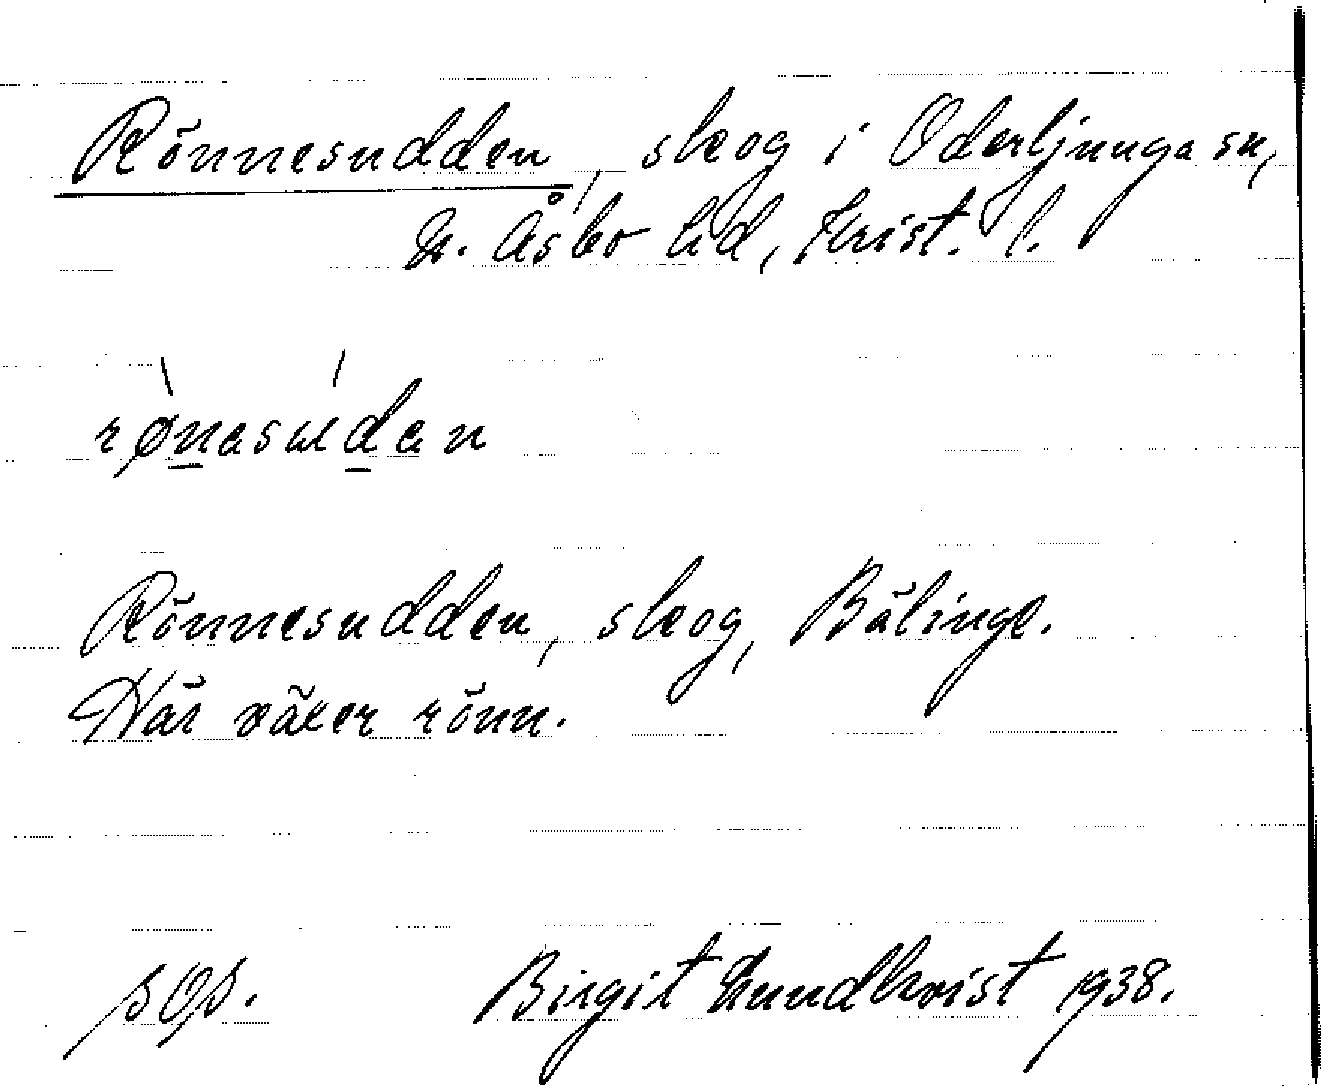 Rönnesudden, skog i Oderljunga sn,
N. Åsbo hd, Krist. l.
rønasudan
Rönnesudden, skog, Bälinge.
Här växer rönn.
Birgit Lundkvist 1938.